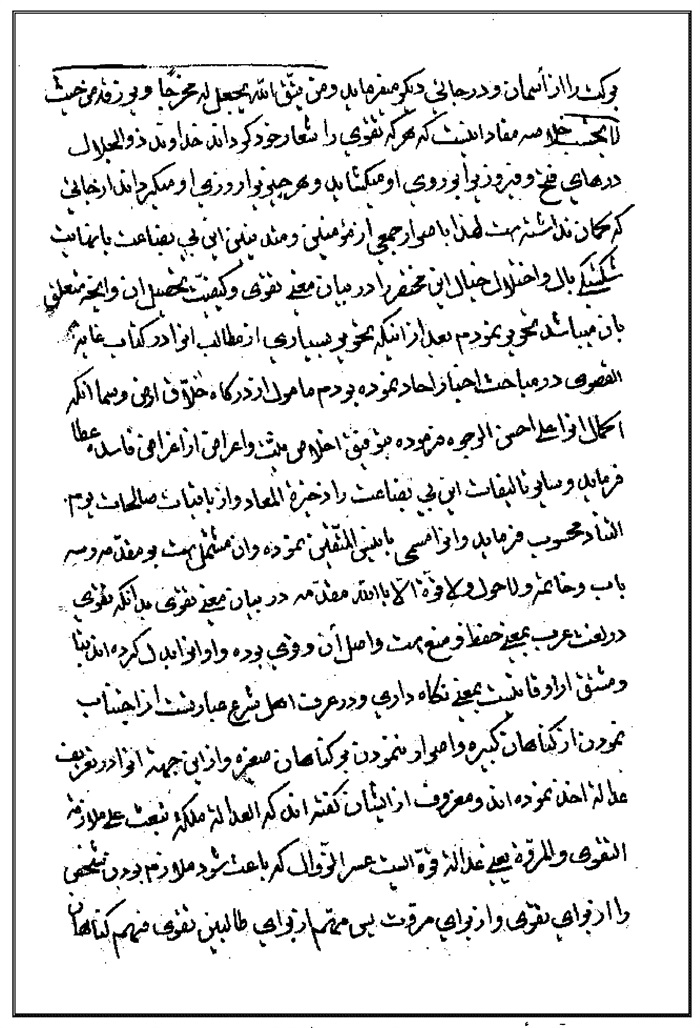 برکت را از آسمان و در جائی دیگر میفرماید ومن یتّق الله یجعل له مخرجًا ویرزقه من حیث
لا یحتسب خلاصه مفاد اینست که هر که تقوی را شعار خود کرداند خداوند ذو الجلال
درهای فتح و فیروزیرا بروی او میکشاید و هر چیز را روزی او میکرداند از جائی
که کمان نداشته است لهذا باصرار جمعی از مؤمنین و متدینین این بی بضاعت با نهایت
شکستکی بال و اختلال خیال این مختصر را در بیان معنی تقوی و کیفیّت تحصیل ان و آنچه متعلق
بان میباشد تحریر نمودم بعد از اینکه تحریر بسیاری از مطالب انرا در کتاب غایة
القصوی در مباحث اخبار احاد نموده بودم مامول از درکاه خلاّق ارض و سما آنکه
اکمال انرا علی احسن الوجوه فرموده توفیق اخلاص نیّت و اعراض از اغراض فاسده عطا
فرماید و سایر تالیفات این بی بضاعت را ذخیرة المعاد و از باقیات صالحات یوم
التناد محسوب فرماید و انرا مسمی بانیس المتّقین نموده و ان مشتمل است بر مقدّمه و سه
باب و خاتمه و لا حول ولا قوّة الاّ بالله مقدّمه در بیان معنی تقوی بدانکه تقوی
در لغت عرب بمعنی حفظ و منع است و اصل آن وقوی بوده و او انرا بدل کرده اند بتا
و مشتق از وقایتست بمعنی نکاه داری و در عرف اهل شرع عبارتست از اجتناب
نمودن از کناهان کبیره و اصرار ننمودن بر کناهان صغیره و از این جهة انرا در تعریف
عدالة اخذ نموده اند و معروف از ایشان کفته اند که العدالة ملکة تبعث علی ملازمة
التقوی والمروّة یعنی عدالة قوّة ایست عسر الزّوال که باعث شود ملازم بودن شخص
را از برای تقوی و از برای مروّت پس مهّم از برای طالبین تقوی فهم کناهان